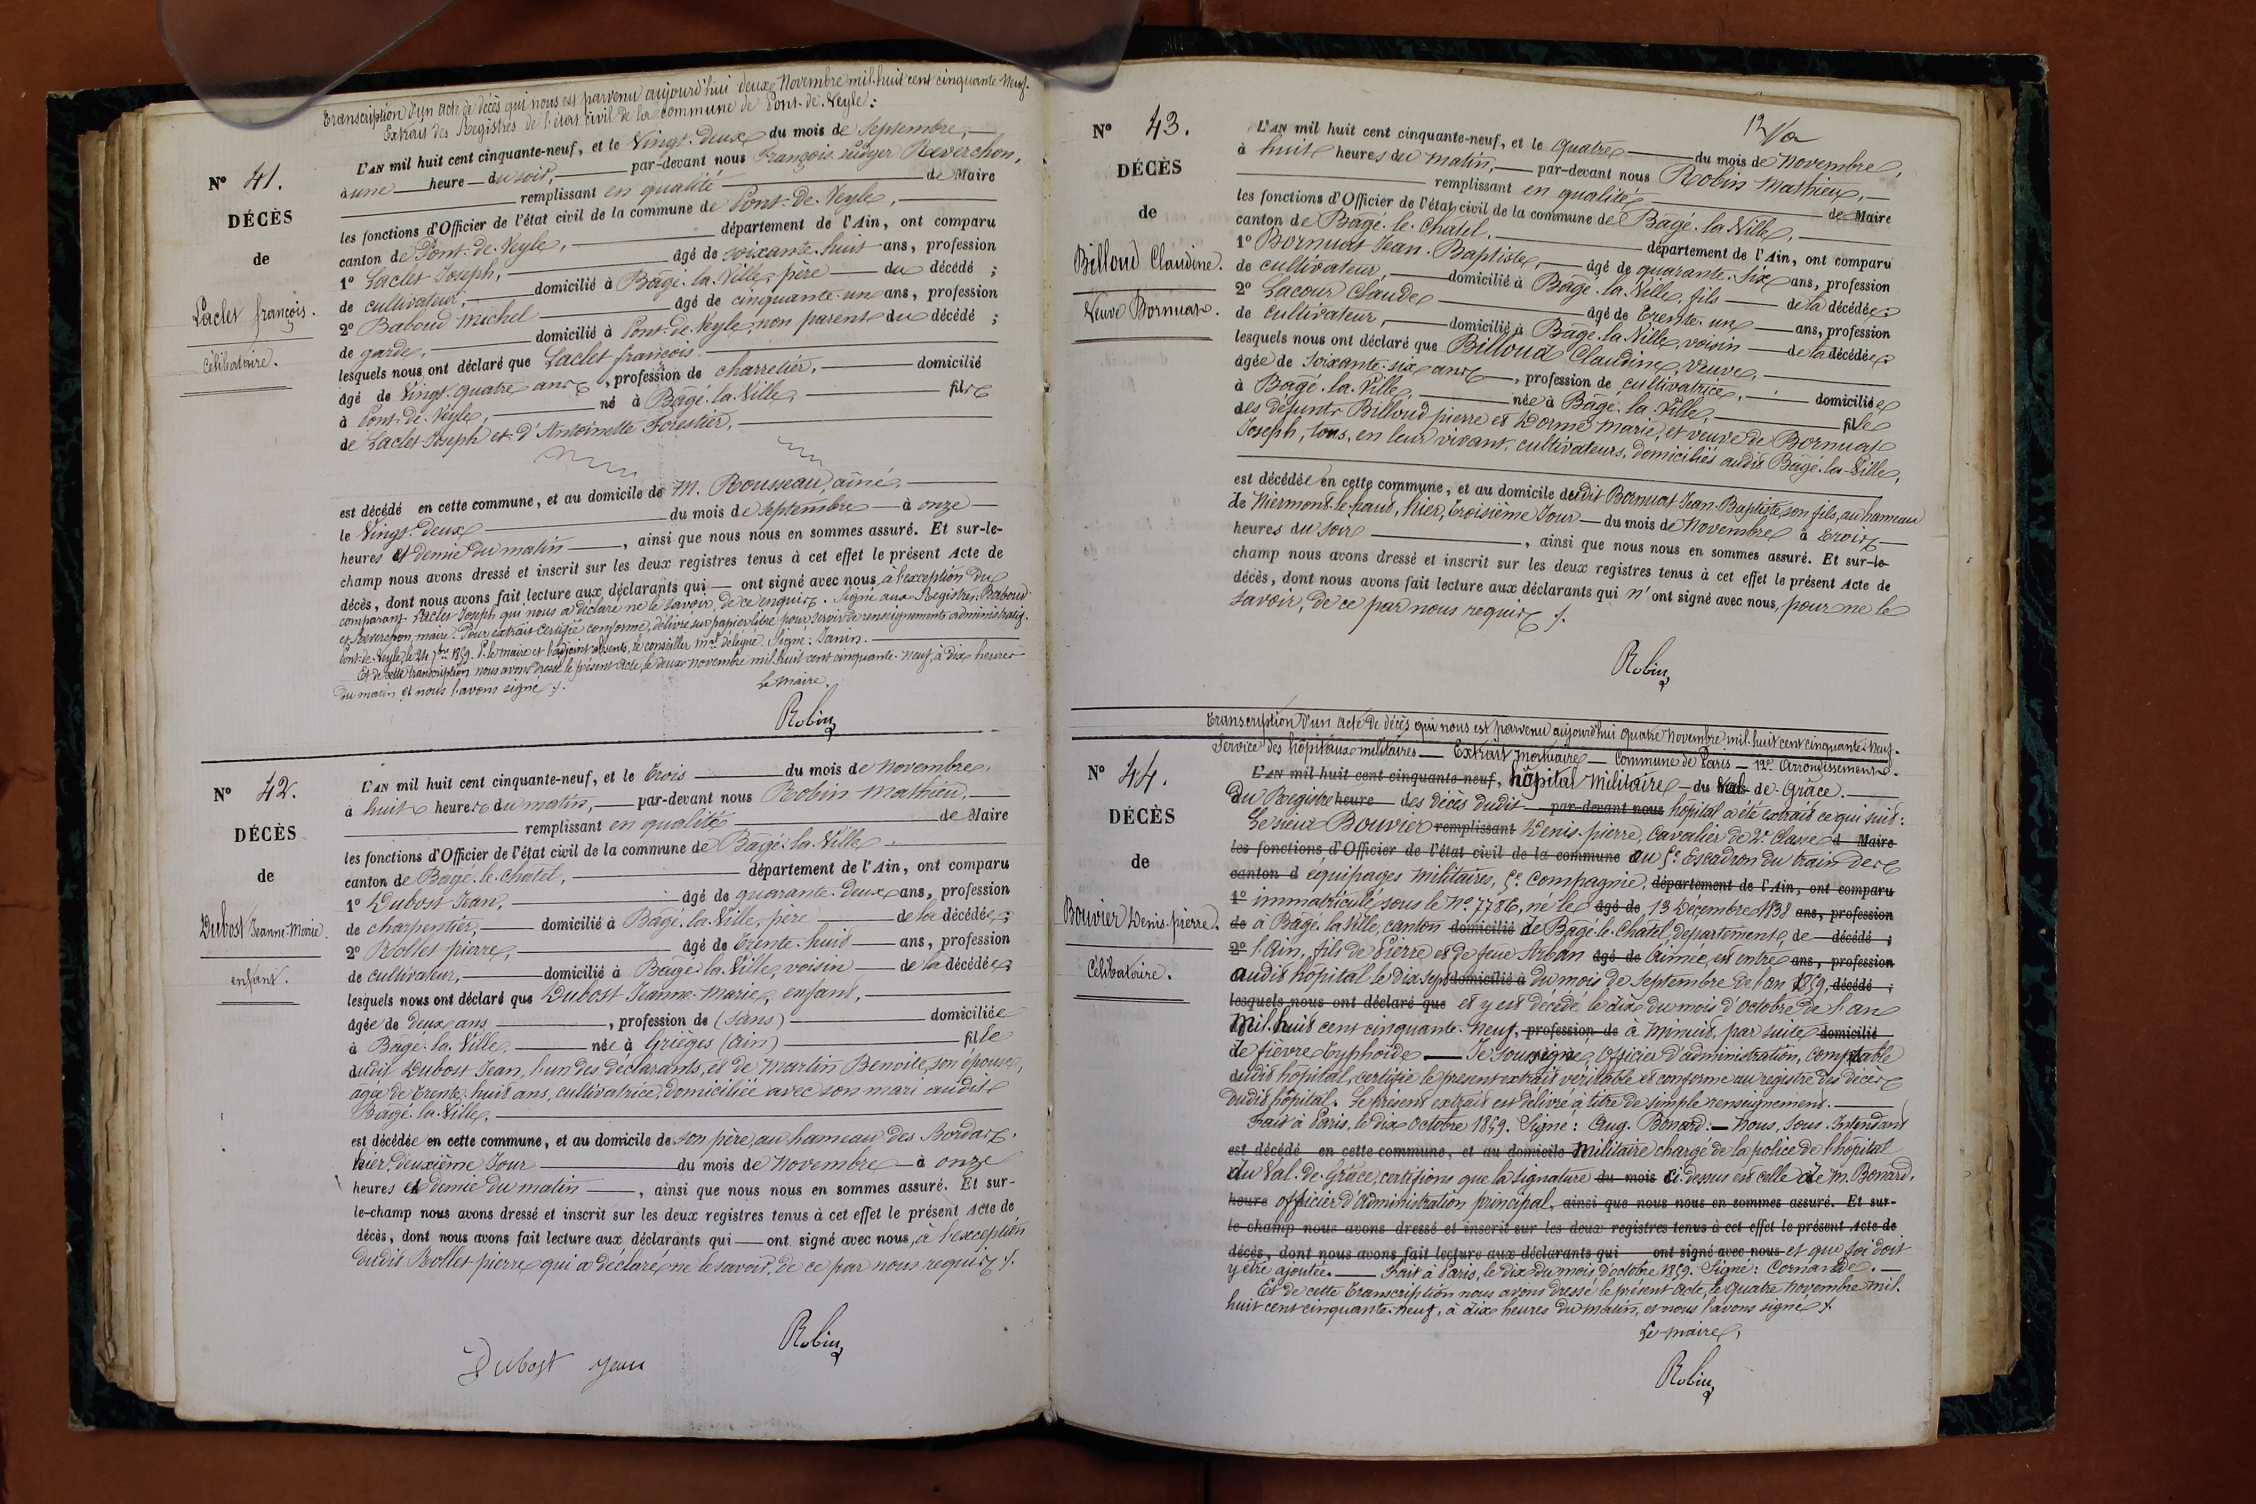 Transcription d'un acte de décès qui nous est parvenu aujourd'hui deux Novembre mil-huit cent cinquante-Neuf.
Extrait des Registres de l'état civil de la commune de Pont-de-Veyle :
N° 41.
DÉCÈS
de
Laclet françois.
Célibataire.
L'AN mil huit cent cinquante-neuf, et le Vingt-deux du mois de Septembre,
à une heure du soir, par-devant nous François Reverchon,
remplissant en qualité de Maire
les fonctions d'Officier de l'état civil de la commune de Pont-de-Veyle,
canton de Pont-de-Veyle, département de l'Ain, ont comparu
1° Laclet Joseph, âgé de soixante-huit ans, profession
de cultivateur, domicilié à Bâgé-la-Ville, père du décédé ;
2° Baboud Michel âgé de cinquante-un ans, profession
de garde, domicilié à Pont-de-Veyle, non parent du décédé ;
lesquels nous ont déclaré que Laclet françois
âgé de Vingt-quatre ans, profession de charretier, domicilié
à Pont-de-Veyle, né à Bâgé-la-Ville, fils
de Laclet Joseph et d'Antoinette Forestier,
est décédé en cette commune, et au domicile de M. Rousseau, aîné,
le Vingt-deux du mois de septembre à onze
heures et demie du matin, ainsi que nous nous en sommes assuré. Et sur-le-
champ nous avons dressé et inscrit sur les deux registres tenus à cet effet le présent Acte de
décès, dont nous avons fait lecture aux déclarants qui ont signé avec nous, à l'exception du
comparant Laclet Joseph qui nous a déclaré ne le savoir, de ce enquis. Signé aux Registres: Baboud
et Reverchon, maire. Pour extrait certifié conforme, délivré sur papier libre pour servir de renseignements administratifs.
Pont-de-Veyle, le 24 7bre 1859. P. le maire et l'adjoint absents, le conseiller mal délégué. Signé: Janin.
Et de cette transcription nous avons dressé le présent acte, le deux novembre mil huit cent cinquante-neuf, à dix heures
du matin et nous l'avons signé ./.
Le maire,
Robin
N° 42.
DÉCÈS
de
Dubost Jeanne-Marie.
enfant.
L'AN mil huit cent cinquante-neuf, et le Trois du mois de Novembre,
à huit heures du matin, par-devant nous Robin Mathieu,
remplissant en qualité de Maire
les fonctions d'Officier de l'état civil de la commune de Bâgé-la-Ville
canton de Bâgé-le-Chatel, département de l'Ain, ont comparu
1° Dubost Jean, âgé de quarante-deux ans, profession
de charpentier, domicilié à Bâgé-la-Ville, père de la décédée ;
2° Rollet pierre, âgé de trente-huit ans, profession
de cultivateur, domicilié à Bâgé-la-Ville, voisin de la décédée ;
lesquels nous ont déclaré que Dubost Jeanne-Marie, enfant,
âgée de deux ans, profession de (sans) domiciliée
à Bâgé-la-Ville, née à Grièges (Ain) fille
dudit Dubost Jean, l'un des déclarants, et de Martin Benoite, son épouse,
âgée de trente-huit ans, cultivatrice, domiciliée avec son mari audit
Bâgé-la-Ville,
est décédée en cette commune, et au domicile de son père, au hameau des Bordas,
hier, deuxième Jour du mois de Novembre à onze
heures et demie du matin, ainsi que nous nous en sommes assuré. Et sur-
le-champ nous avons dressé et inscrit sur les deux registres tenus à cet effet le présent Acte de
décès, dont nous avons fait lecture aux déclarants qui ont signé avec nous, à l'exception
dudit Rollet pierre qui a déclaré ne le savoir, de ce par nous requis ./.
Robin
Dubost Jean
N° 43.
DÉCÈS
de
Billoud Claudine.
Veuve Bornuat.
L'AN mil huit cent cinquante-neuf, et le quatre du mois de Novembre,
à huit heures du matin, par-devant nous Robin Mathieu,
remplissant en qualité de Maire
les fonctions d'Officier de l'état civil de la commune de Bâgé-la-Ville,
canton de Bâgé-le-Châtel, département de l'Ain, ont comparu
1° Bornuat Jean-Baptiste, âgé de quarante-six ans, profession
de cultivateur, domicilié à Bâgé-la-Ville, fils de la décédée ;
2° Lacour Claude âgé de trente-un ans, profession
de cultivateur, domicilié à Bâgé-la-Ville, voisin de la décédée ;
lesquels nous ont déclaré que Billoud Claudine, Veuve,
âgée de soixante-six ans, profession de cultivatrice, domiciliée
à Bâgé-la-Ville, née à Bâgé-la-Ville, fille
des défunts Billoud pierre et Dorme Marie, et veuve de Bornuat
Joseph, tous, en leur vivant, cultivateurs, domiciliés audit Bâgé-la-Ville,
est décédée en cette commune, et au domicile dudit Bornuat Jean-Baptiste, son fils, au hameau
de Niermont-le-haut, hier, troisième Jour du mois de Novembre à trois
heures du soir, ainsi que nous nous en sommes assuré. Et sur-le-
champ nous avons dressé et inscrit sur les deux registres tenus à cet effet le présent Acte de
décès, dont nous avons fait lecture aux déclarants qui n'ont signé avec nous, pour ne le
savoir, de ce par nous requis ./.
Robin
Transcription d'un acte de décès qui nous est parvenu aujourd'hui quatre novembre mil-huit cent cinquante-neuf.
Service des hôpitaux militaires — Extrait mortuaire — Commune de Paris — 12e Arrondissement.
N° 44.
DÉCÈS
de
Bouvier Denis-pierre.
Célibataire.
L'AN mil huit cent cinquante-neuf, hôpital Militaire du Val-de-Grâce.
Du Registre heure des décès dudit par-devant nous hôpital a été extrait ce qui suit :
Le sieur Bouvier remplissant Denis-pierre, Cavalier de 2e Classe d Maire
les fonctions d'Officier de l'état civil de la commune au 5e Escadron du train des
canton d équipages militaires, 5e Compagnie, département de l'Ain, ont comparu
1° immatriculé sous le No 7786, né le âgé de 13 Décembre 1838 ans, profession
de à Bâgé-la-Ville, canton domicilié de Bâgé-le-Châtel, département de décédé ;
2° l'Ain, fils de Pierre et de feue Arban âgé de Aimée, est entré ans, profession
audit hôpital le dix-sept domicilié à du mois de Septembre de l'an 1859, décédé ;
lesquels nous ont déclaré que et y est décédé le dix du mois d'octobre de l'an
Mil-huit cent cinquante-neuf, profession de à minuit, par suite domicilié
de fièvre typhoïde — Je soussigné, Officier d'administration, comptable
dudit hôpital, certifie le présent extrait véritable et conforme au registre des décès
dudit hôpital. Le présent extrait est délivré à titre de simple renseignement.
Fait à Paris, le dix octobre 1859. Signé : Aug. Bonard : — Nous, Sous-Intendant
est décédé en cette commune, et au domicile Militaire chargé de la police de l'hôpital
du Val-de-Grâce, certifions que la signature du mois ci-dessus est celle de M. Bonard,
heure officier d'Administration principal, ainsi que nous nous en sommes assuré. Et sur-
le-champ nous avons dressé et inscrit sur les deux registres tenus à cet effet le présent Acte de
décès, dont nous avons fait lecture aux déclarants qui ont signé avec nous et que foi doit
y être ajoutée. — Fait à Paris, le dix du mois d'octobre 1859. Signé :
Et de cette transcription nous avons dressé le présent acte, le quatre novembre mil-
huit cent cinquante-neuf, à dix heures du matin, et nous l'avons signé ./.
Le maire,
Robin